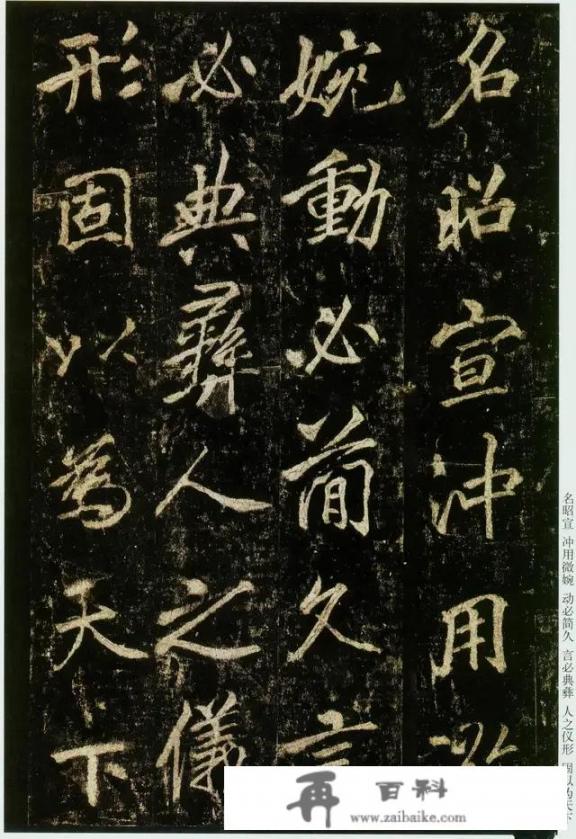 名昭宣冲用
婉動必簡久言
必典彝人之儀
形固以為天下
名昭宣 冲用微婉 动必简久 言必典彝 人之仪形 固以为天下
再百科
www.zaibaike.com